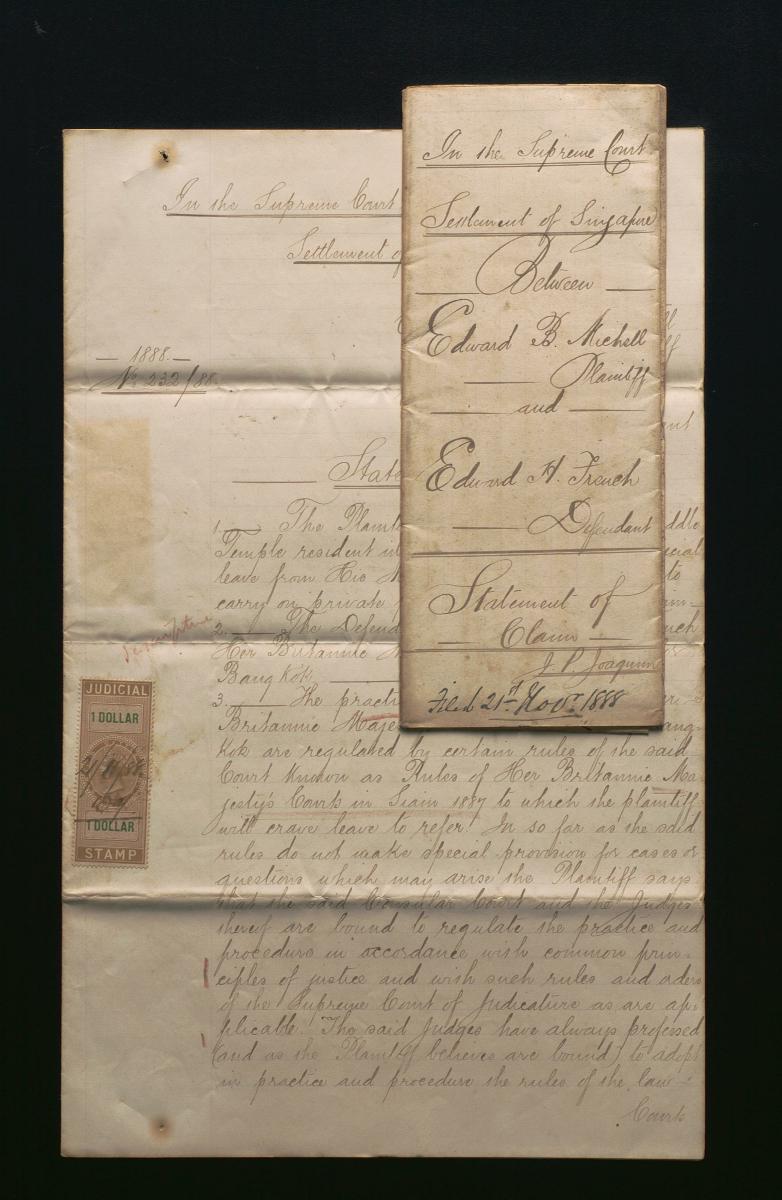 In the Supreme Court
Settlement of Singapore
Between
Edward B. Michell
Plaintiff
and
Edward H. French
Defendant
Statement of
Claim
J. P. Joaquim
Filed 21st Novr 1888
In the Supreme Court
Settlement of
1888
No 232/88
State
1. The Plaint
Temple resident
leave from His
carry on private
2. The Defend
Her Britannic
Bangkok
3. The practi
Britannic Majes
kok are regulated by certain rules of the said
Court known as Rules of Her Britannic Ma
jesty's Courts in Siam 1887 to which the plaintiff
will crave leave to refer. In so far as the said
rules do not make special provision for cases or
questions which may arise the Plaintiff says
that the said Consular Court and the Judges
thereof are bound to regulate the practice and
procedure in accordance with common prin-
ciples of justice and with such rules and orders
of the Supreme Court of Judicature as are ap-
plicable. The said Judges have always professed
(and as the Plaintiff believes are bound) to adopt
in practice and procedure the rules of the law
Courts
JUDICIAL
1 DOLLAR
21/11/88
1 DOLLAR
STAMP